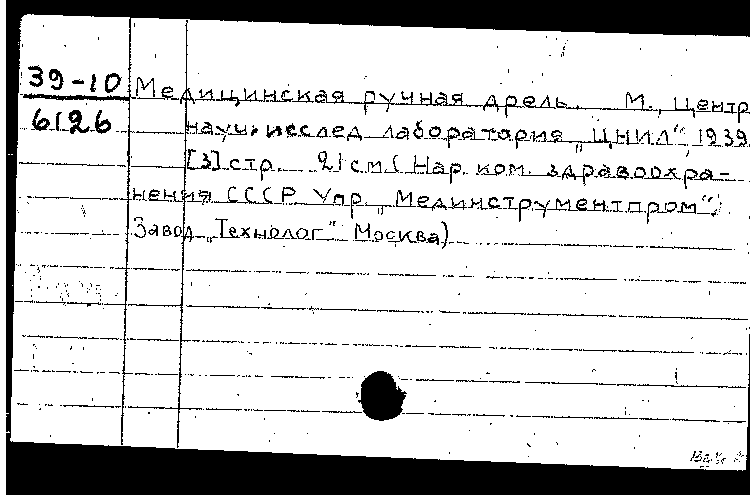 39-10
6126
Медицинская ручная дрель. М., Центр
науч. исслед лаборатория „ЦНИЛ“, 1939.
[3] стр. 21 см. (Нар. ком. здравоохра-
нения СССР. Упр. „Мединструментпром“.
Завод „Технолог“ Москва)